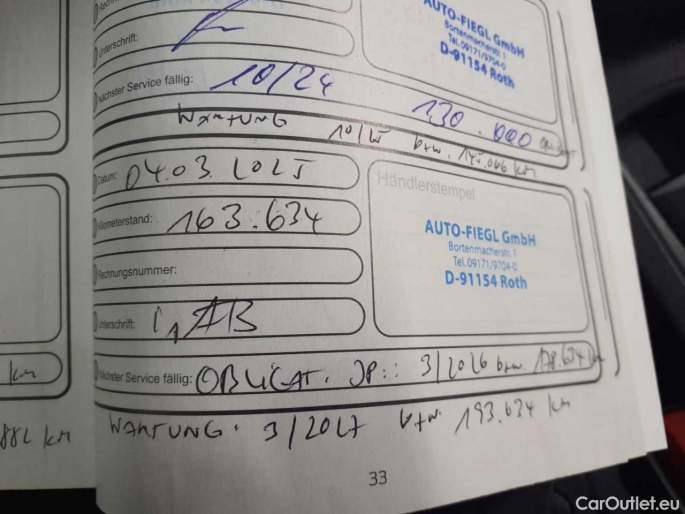 Unterschrift:
AUTO-FIEGL GmbH
Bortenmacherstr. 1
Tel. 09171/9704-0
D-91154 Roth
Nächster Service fällig: 10/24 130.000
WARTUNG 10/25 bzw. 145.000 km
Datum: 04.03.2025
Händlerstempel
Kilometerstand: 163.634
AUTO-FIEGL GmbH
Bortenmacherstr. 1
Tel. 09171/9704-0
D-91154 Roth
Rechnungsnummer:
Unterschrift:
Nächster Service fällig: OBLIGAT. JP.: 3/2026 bzw. 178.634 km
km
WARTUNG: 3/2027 bzw. 193.634 km
882 km
33
CarOutlet.eu